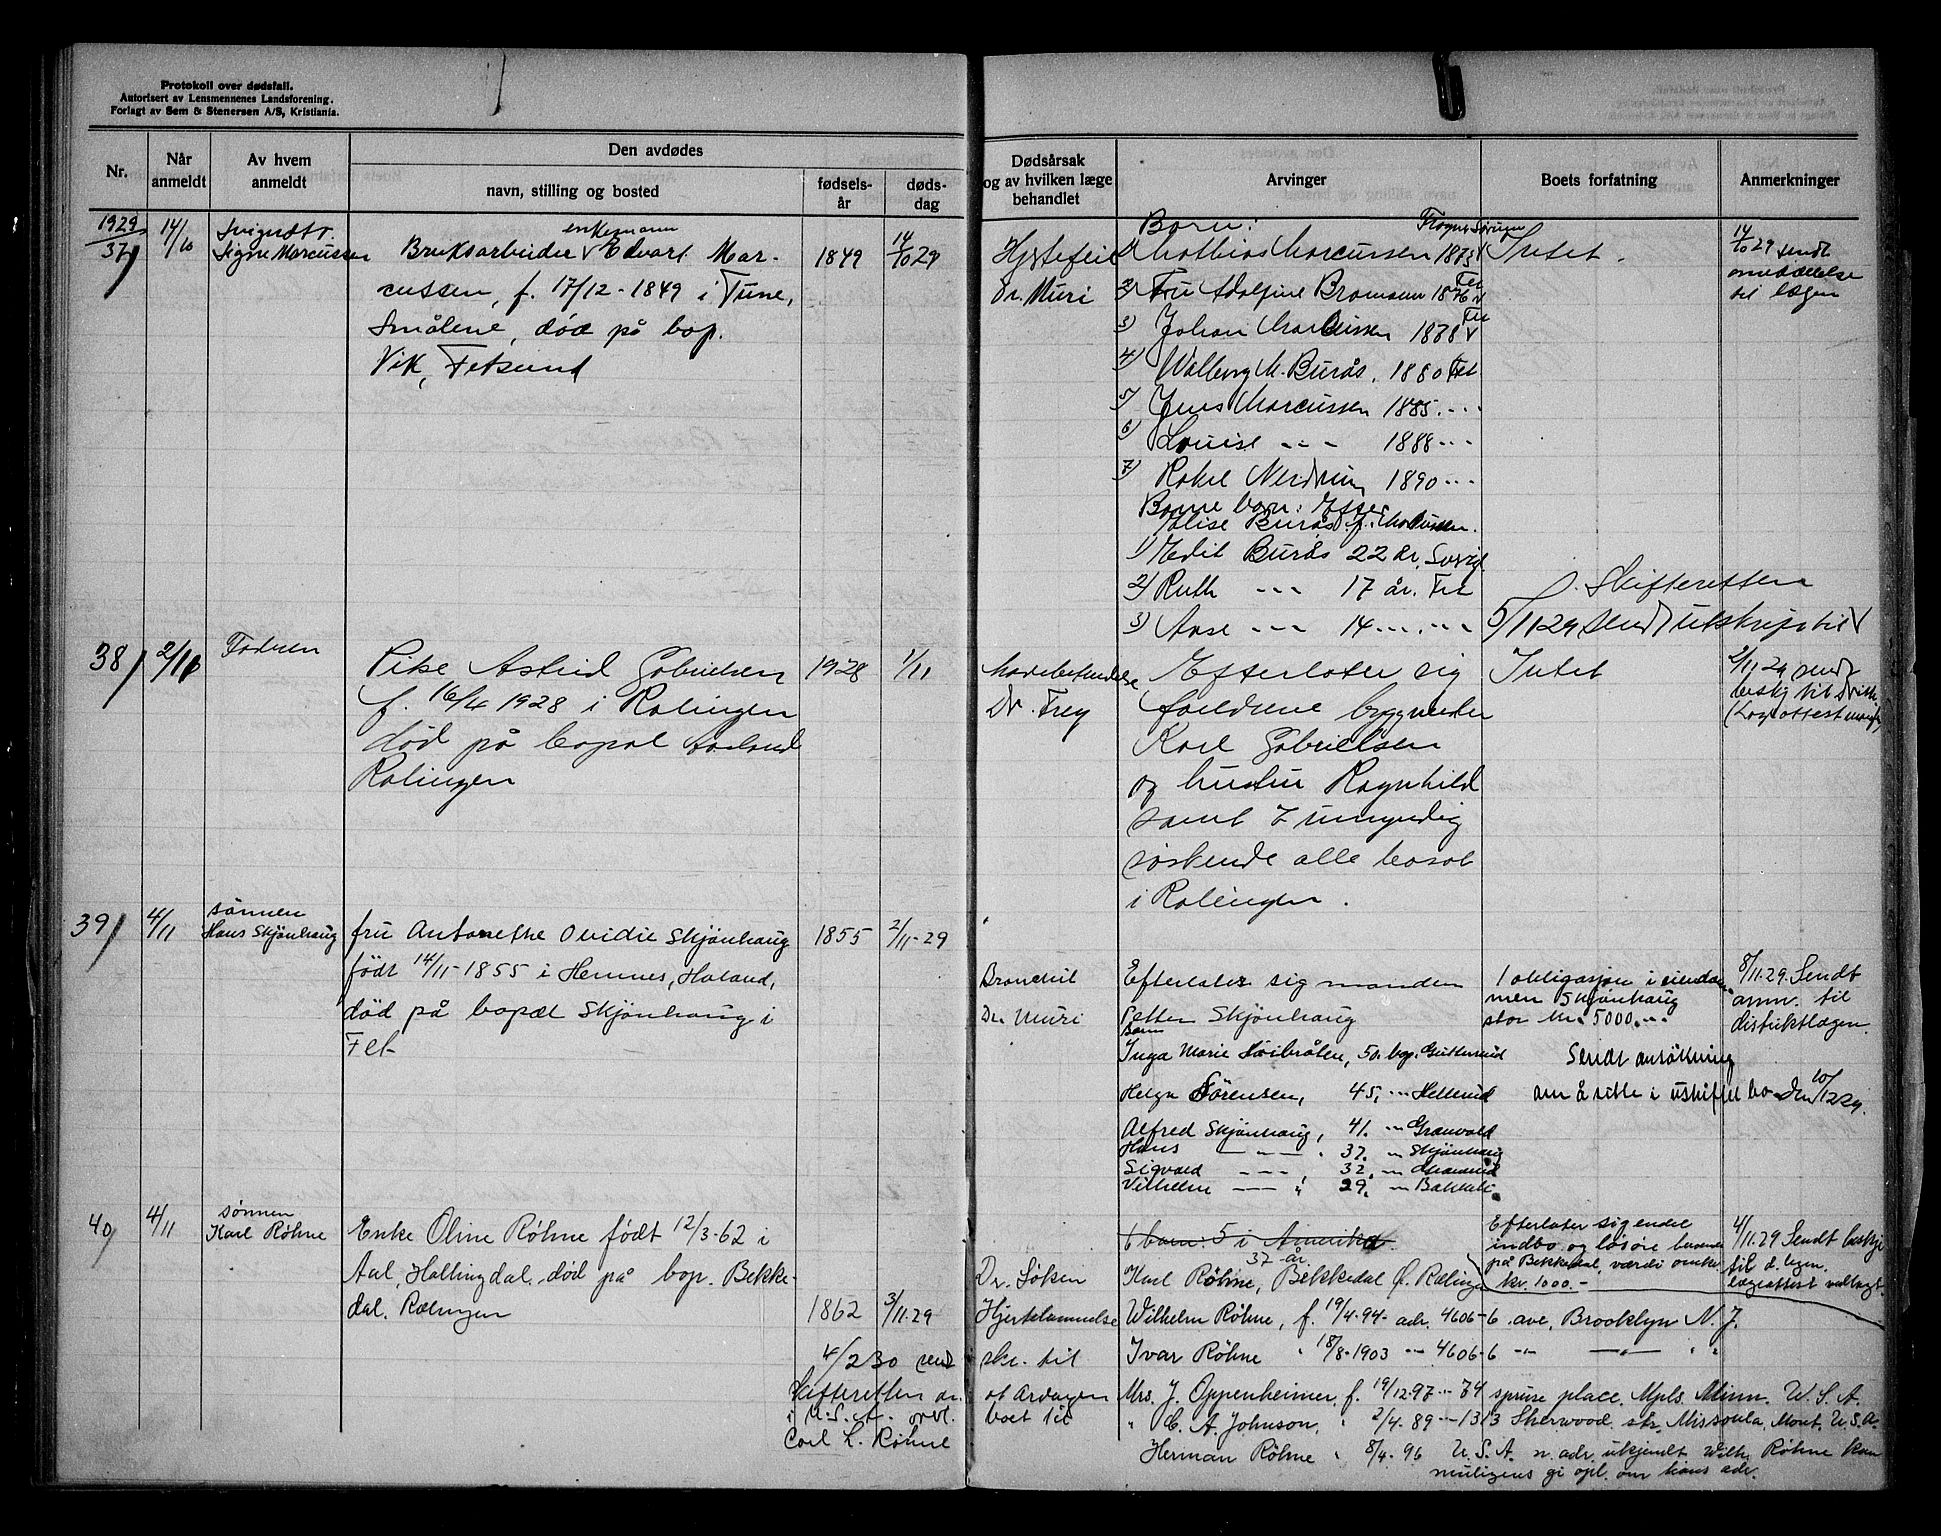 Protokoll over dødsfall.
Autorisert av Lensmennenes Landsforening.
Forlagt av Sem & Stenersen A/S, Kristiania.
Nr.
Når anmeldt
Av hvem anmeldt
Den avdødes
navn, stilling og bosted
fødsels-år
døds-dag
Dødsårsak og av hvilken læge behandlet
Arvinger
Boets forfatning
Anmerkninger
1929
37
14/10
Svigerdt.
Signe Marcussen
enkemann
Bruksarbeider Edvart Mar-
cussen, f. 17/12-1849 i Tune,
Smålene, død på bop.
Vik, Fetsund
1849
14/10 29
Hjertefeil
Dr. Muri
Born:
Frogner Sørum
1) Mathias Marcussen 1873
2) Fru Adolfine Bramsen 1876 Fet
3) Johan Marcussen 1878 Fet
4) Walborg M. Burås, 1880 Fet
5) Jens Marcussen 1885 - - -
6) Louise - - - 1888 - - -
7) Rakel Nerdrum 1890 - - -
Barne barn: Efter
Elise Burås f. Marcussen.
1) Edit Burås 22 år,
2) Ruth - - - 17 år. Fet
3) Aase - - - 14 - - -
Intet.
14/10 29 sendt
omveddelse
til lægen
Skifteretten
5/11 29 sendt utskrift til
38
2/11
Faderen
Pike Astrid Gabrielsen
f. 16/4 1928 i Rælingen
død på bopæl Aarland
Rælingen
1928
1/11
Dr. Frey
Efterlater sig
foreldrene byggmester
Karl Gabrielsen
og hustru Ragnhild
samt 7 umyndig
søskende alle bosat
i Rælingen.
Intet
2/11 29 sendt
beskj til distr.
39
4/11
sönnen
Hans Skjönhaug
fru Antonette Ovidie Skjönhaug
født 14/11-1855 i Hemnes, Höland,
død på bopæl Skjönhaug i
Fet
1855
2/11-29
Bronchit
Dr. Muri
Efterlater sig manden
Petter Skjönhaug
Barn
Inga Marie Høibråten, 50, bop. Guttersrud
Helga Sørensen, 45, - - Hellerud
Alfred Skjönhaug, 41. - - Granvold
Hans - - - 37. - - Skjönhaug
Sigvald - - - 32.
Vilhelm - - - 29. - - Bakkeli
1 obligasjon i eiendom-
men Skjönhaug
stor kr. 5000.--
8/11.29. Sendt
anm. til
distriktlægen.
Sendt ansökning
om å sitte i uskiftet bo den 10/12 29.
40
4/11
sönnen
Karl Røhne
Enke Oline Røhne født 12/3-62 i
Aal, Hallingdal, død på bop. Bekke-
dal, Rælingen
1862
3/11.29
Dr. Söken
Hjertelammelse
6 barn: 5 i Amerika.
37 år
Karl Røhne, Bekkedal Ö. Rælingen
Wilhelm Røhne, f. 19/4-94 - adr. 4606-6 ave, Brooklyn N. J.
Ivar Røhne " 18/8-1903 - - 4606-6 - - " "
Mrs. J. Oppenheimer, f. 19/12-97 - - 74 spruse place, Mpls. Minn. U. S. A.
" C. A. Johnson, " 2/4-89 - - 1313 Sherwood str. Missoula, Mont. U. S. A.
Herman Røhne " 8/4-96 U. S. A. n. adr. ukjendt Wilh. Røhne kan
muligens gi opl. om hans adr.
Efterlater sig endel
indbo og løsöre beroende
på Bekkedal, værdi omkr
kr. 1000.-
4/11.29 Sendt beskje
til d. lægen.
lægeattest vedlagt.
4/2 30 send
ske. til
skifteretten
at Arvingen
i U. S. A.
boet til
Carl L. Røhne